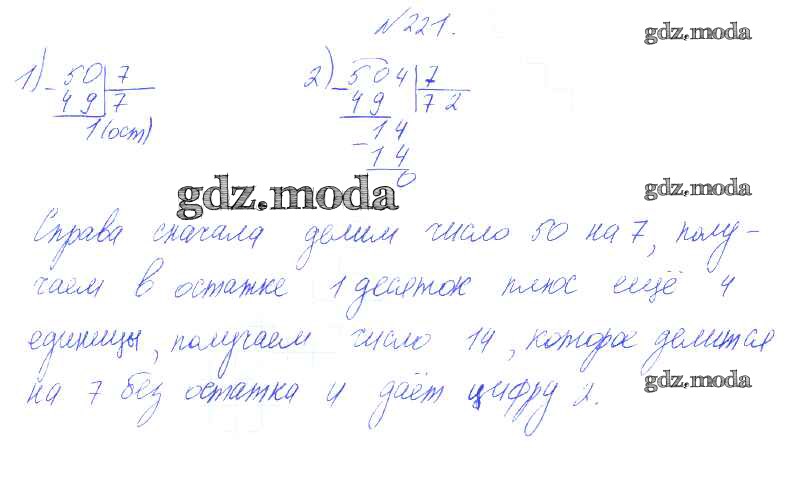 №221.
gdz.moda
1) 50 7
- 49 7
1(ост)
2) 504 7
- 49 72
14
- 14
0
gdz.moda
gdz.moda
Справа сначала делим число 50 на 7, полу-
чаем в остатке 1 десяток плюс ещё 4
единицы, получаем число 14, которое делится
на 7 без остатка и даёт цифру 2.
gdz.moda